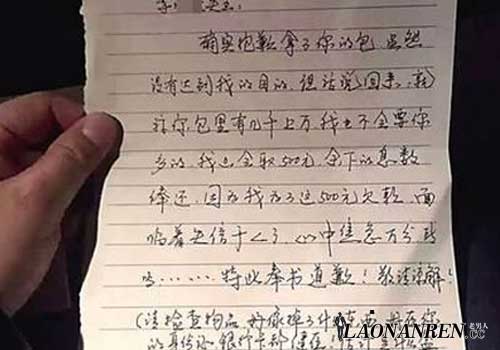 确实抱歉拿了你的包,虽然
没有达到我的目的,但话说回来,就
算你包里有几千上万我也不会要你
多的,我也会取500元,余下的悉数
奉还,因为我为了这500元欠款,面
临着失信于人了,心中焦急万分
……特此奉书道歉!敬请谅解!
(请检查物品
的身份证,银行卡都
LAONANREN.CC
老男人